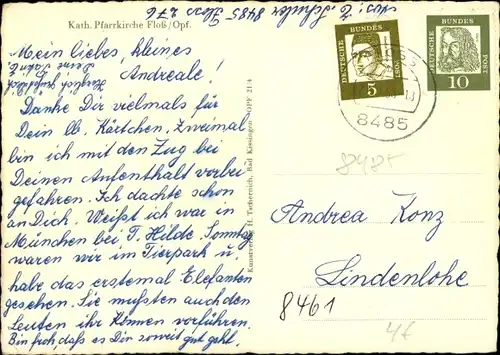 Kath. Pfarrkirche Floß/Opf.
Abs. E. Schuler 8485 Floss 276
Mein liebes, kleines
Andreale!
Danke Dir vielmals für
Dein lb. Kärtchen, zweimal
bin ich mit den Zug bei
Deinen Aufenthalt vorbei
gefahren. Ich dachte schon
an Dich. Weißt ich war in
München bei T. Hilde. Sonntag
waren wir im Tierpark u.
habe das erstemal Elefanten
gesehen. Sie mußten auch den
Leuten ihr Können vorführen.
Bin froh, daß es Dir soweit gut geht.
Herzlich
Deine
Kunstverlag H. Tschernich, Bad Kissingen
OPF 21/4
DEUTSCHE BUNDES POST
5
DEUTSCHE BUNDES POST
10
8485
8485
Andrea Konz
Lindenlohe
8461
4€